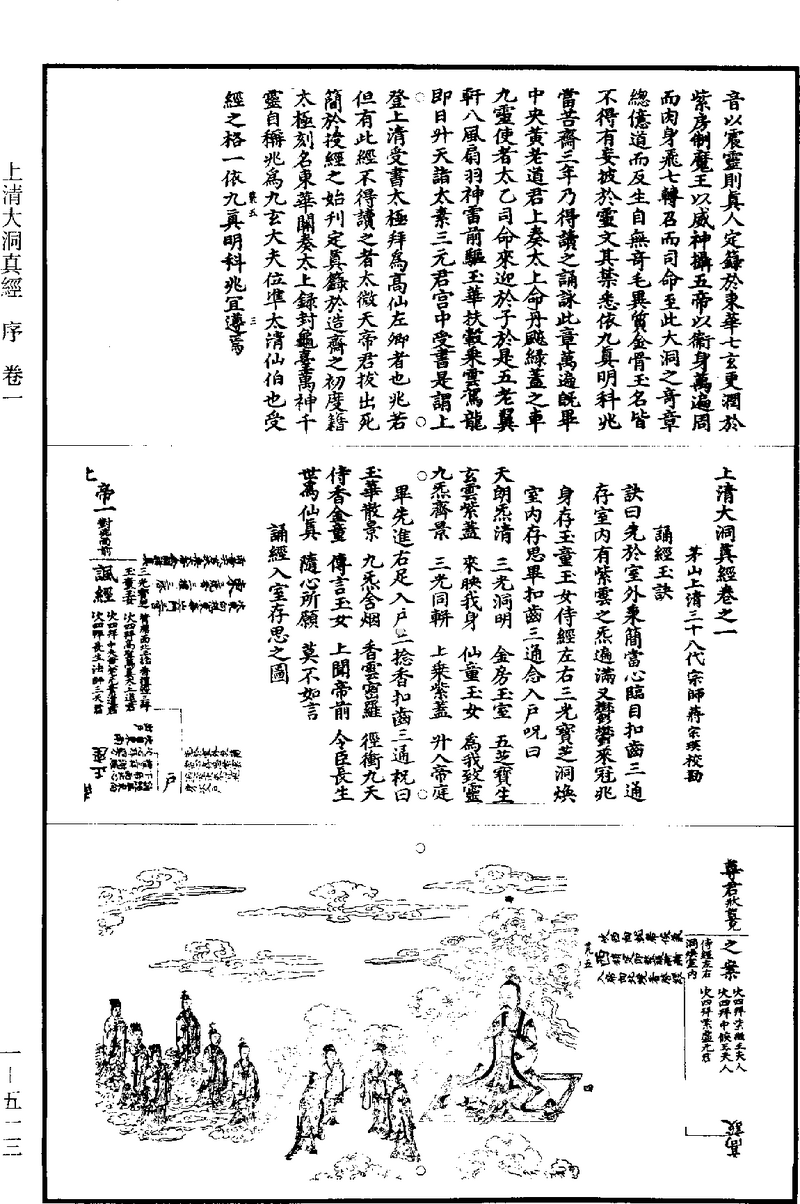 上清大洞真經 序 卷一
一—五一三
音以震靈則真人定籙於東華七玄更潤於
紫房制魔王以威神攝五帝以衞身萬遍周
而肉身飛七轉召而司命至此大洞之竒章
總億道而反生自無竒毛異質金骨玉名皆
不得有妄披於靈文其禁悉依九真明科兆
當苦齋三年乃得讀之誦詠此章萬遍既畢
中央黄老道君上奏太上命丹飈緑蓋之車
九靈使者太乙司命來迎於子於是五老翼
軒八風扇羽神雷前驅玉華扶轂乗雲駕龍
即日升天詣太素三元君宫中受書是謂上
登上清受書太極拜爲高仙左卿者也兆若
但有此經不得讀之者太微天帝君拔出死
簡於授經之始刋定真籙於造齋之初度籍
太極刻名東華關奏太上録封龜臺萬神千
靈自稱兆爲九玄大夫位準太清仙伯也受
經之格一依九真明科兆宜遵焉
上清大洞真經卷之一
茅山上清三十八代宗師蔣宗瑛校勘
誦經玉訣
訣曰先於室外秉簡當心臨目扣齒三通
存室内有紫雲之炁遍滿又鬱鬱來冠兆
身存玉童玉女侍經左右三光寳芝洞煥
室内存思畢扣齒三通念入户呪曰
天朗炁清 三光洞明 金房玉室 五芝寳生
玄雲紫蓋 來映我身 仙童玉女 爲我致靈
九炁齊景 三光同軿 上乗紫蓋 升入帝庭
畢先進右足入户三捻香扣齒三通祝曰
玉華散景 九炁含烟 香雲密羅 徑衝九天
侍香金童 傳言玉女 上聞帝前 令臣長生
世爲仙真 隨心所願 莫不如言
誦經入室存思之圖
帝一
諷經
户
尊君
之案
侍經左右
洞煥室内
次四拜紫虛元君